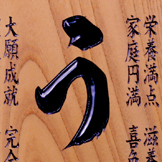 栄養満点 滋養
家庭円満 喜
う
大願成就 完全